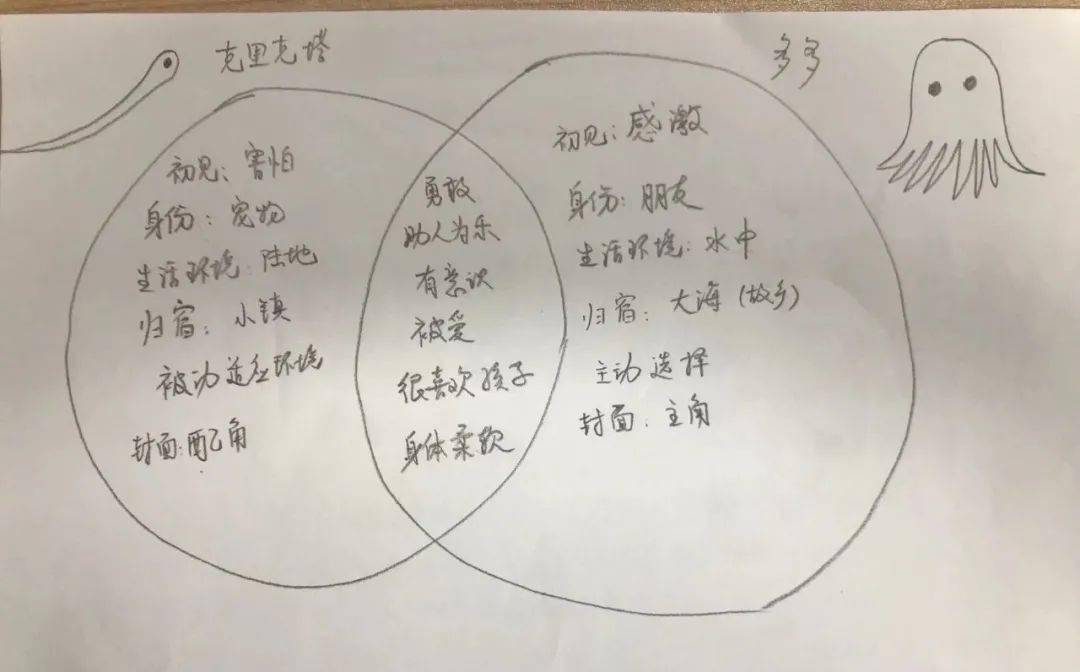 克里克塔
初见：害怕
身份：宠物
生活环境：陆地
归宿：小镇
被动适应环境
封面：配角
勇敢
助人为乐
有意识
被爱
很喜欢孩子
身体柔软
多多
初见：感激
身份：朋友
生活环境：水中
归宿：大海（故乡）
主动选择
封面：主角